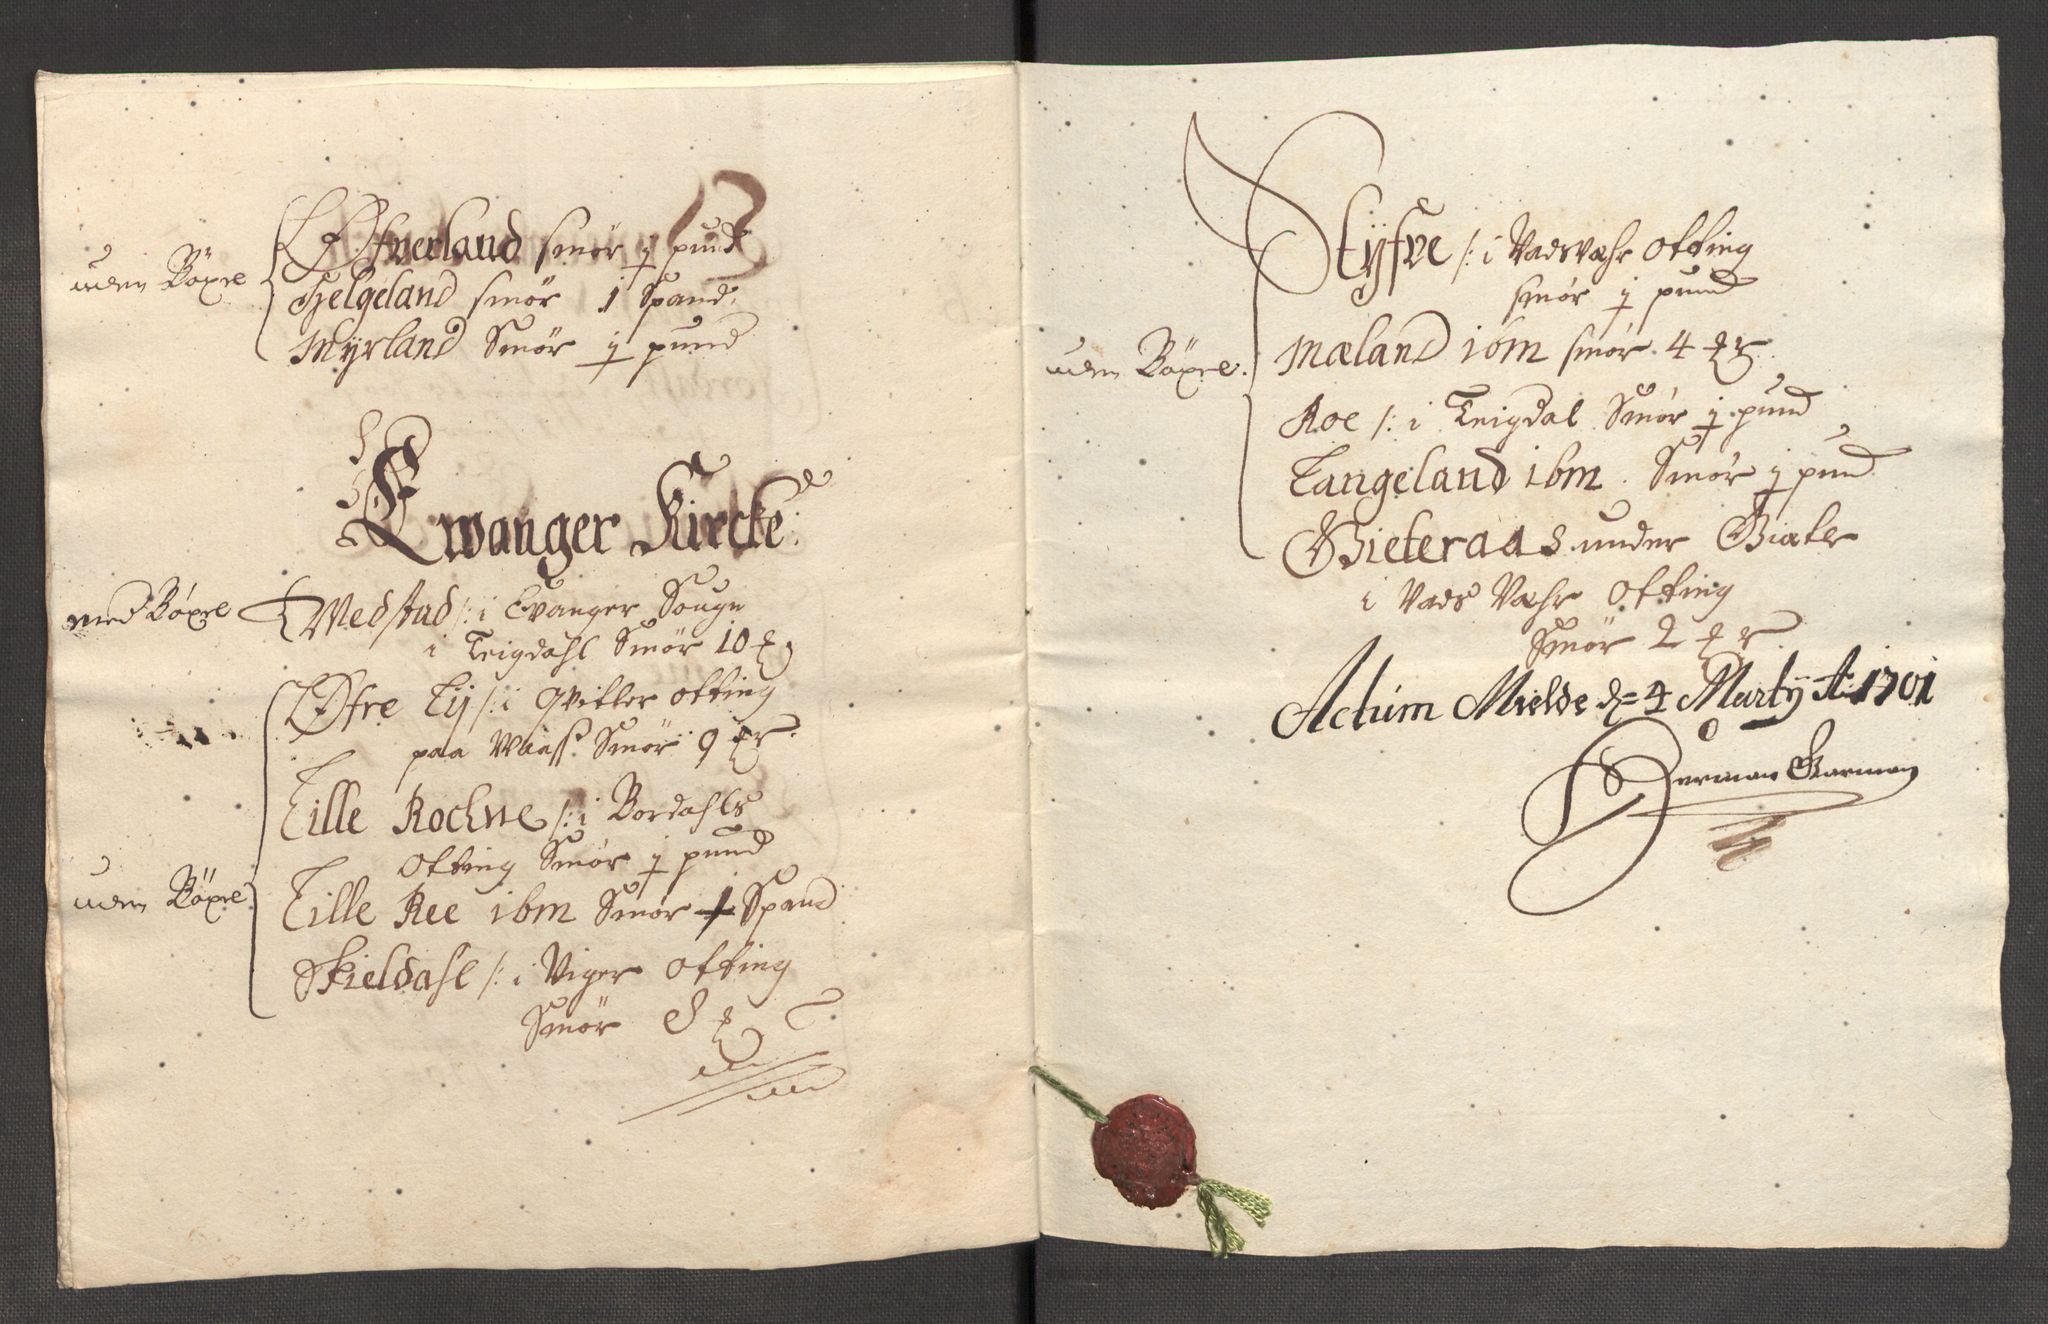 uden Böxle
Øfuerland smör ½ pund
Helgeland smör 1 Spand
Myrland Smör ½ pund
Ewanger Kircke
med Böxle
Wedstad /: i Evanger Sougn
i Teigdahl Smör 10
Øfre Lij /: i Qvitler otting
paa Waass Smör 9
Lille Rochne /: i Bordahls
Otting Smör ½ pund
uden Böxle
Lille Ree ibm Smör 1 Spand
Skieldahl /: i Viger Otting
Smör
Styfve /: i Vadsvæhr Otting
smör ½ pund
uden Böxle
Mæland ibm smör 4
Roe /: i Teigdal Smör ½ pund
Langeland ibm Smör ½ pund
Gieteraas under Giatle
i Vads Væhr Otting
Smör 2
Actum Mielde d= 4 Martij Ao 1701
Herman Garman